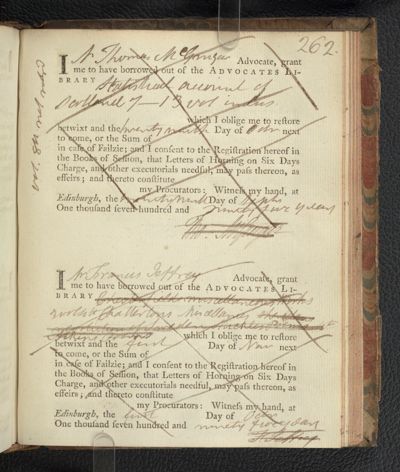 262.
I Mr Thomas McGrugar Advocate, grant
me to have borrowed out of the ADVOCATES LI-
BRARY Statistical account of
Scotland 7 – 13 vol inclus
which I oblige me to restore
betwixt and the twenty ninth Day of Octr next
to come, or the Sum of
in case of Failzie; and I consent to the Registration hereof in
the Books of Session, that Letters of Horning on Six Days
Charge, and other executorials needful, may pass thereon, as
effeirs; and thereto constitute
my Procurators: Witness my hand, at
Edinburgh, the twenty ninth Day of Septr
One thousand seven hundred and ninety five years
I Mr Francis Jeffrey Advocate, grant
me to have borrowed out of the ADVOCATES LI-
BRARY miscellaneous works
Chattertons Miscellanies
which I oblige me to restore
betwixt and the first Day of Novr next
to come, or the Sum of
in case of Failzie; and I consent to the Registration hereof in
the Books of Session, that Letters of Horning on Six Days
Charge, and other executorials needful, may pass thereon, as
effeirs; and thereto constitute
my Procurators: Witness my hand, at
Edinburgh, the first Day of Octr
One thousand seven hundred and ninety five years
F. Jeffrey